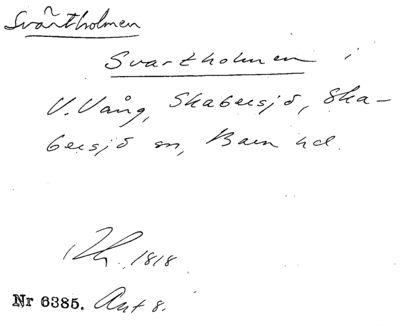 Svartholmen
Svartholmen i
V. Vång, Skabersjö, Ska-
bersjö sn, Bara hd.
1818
Nr 6385. Ant 8.